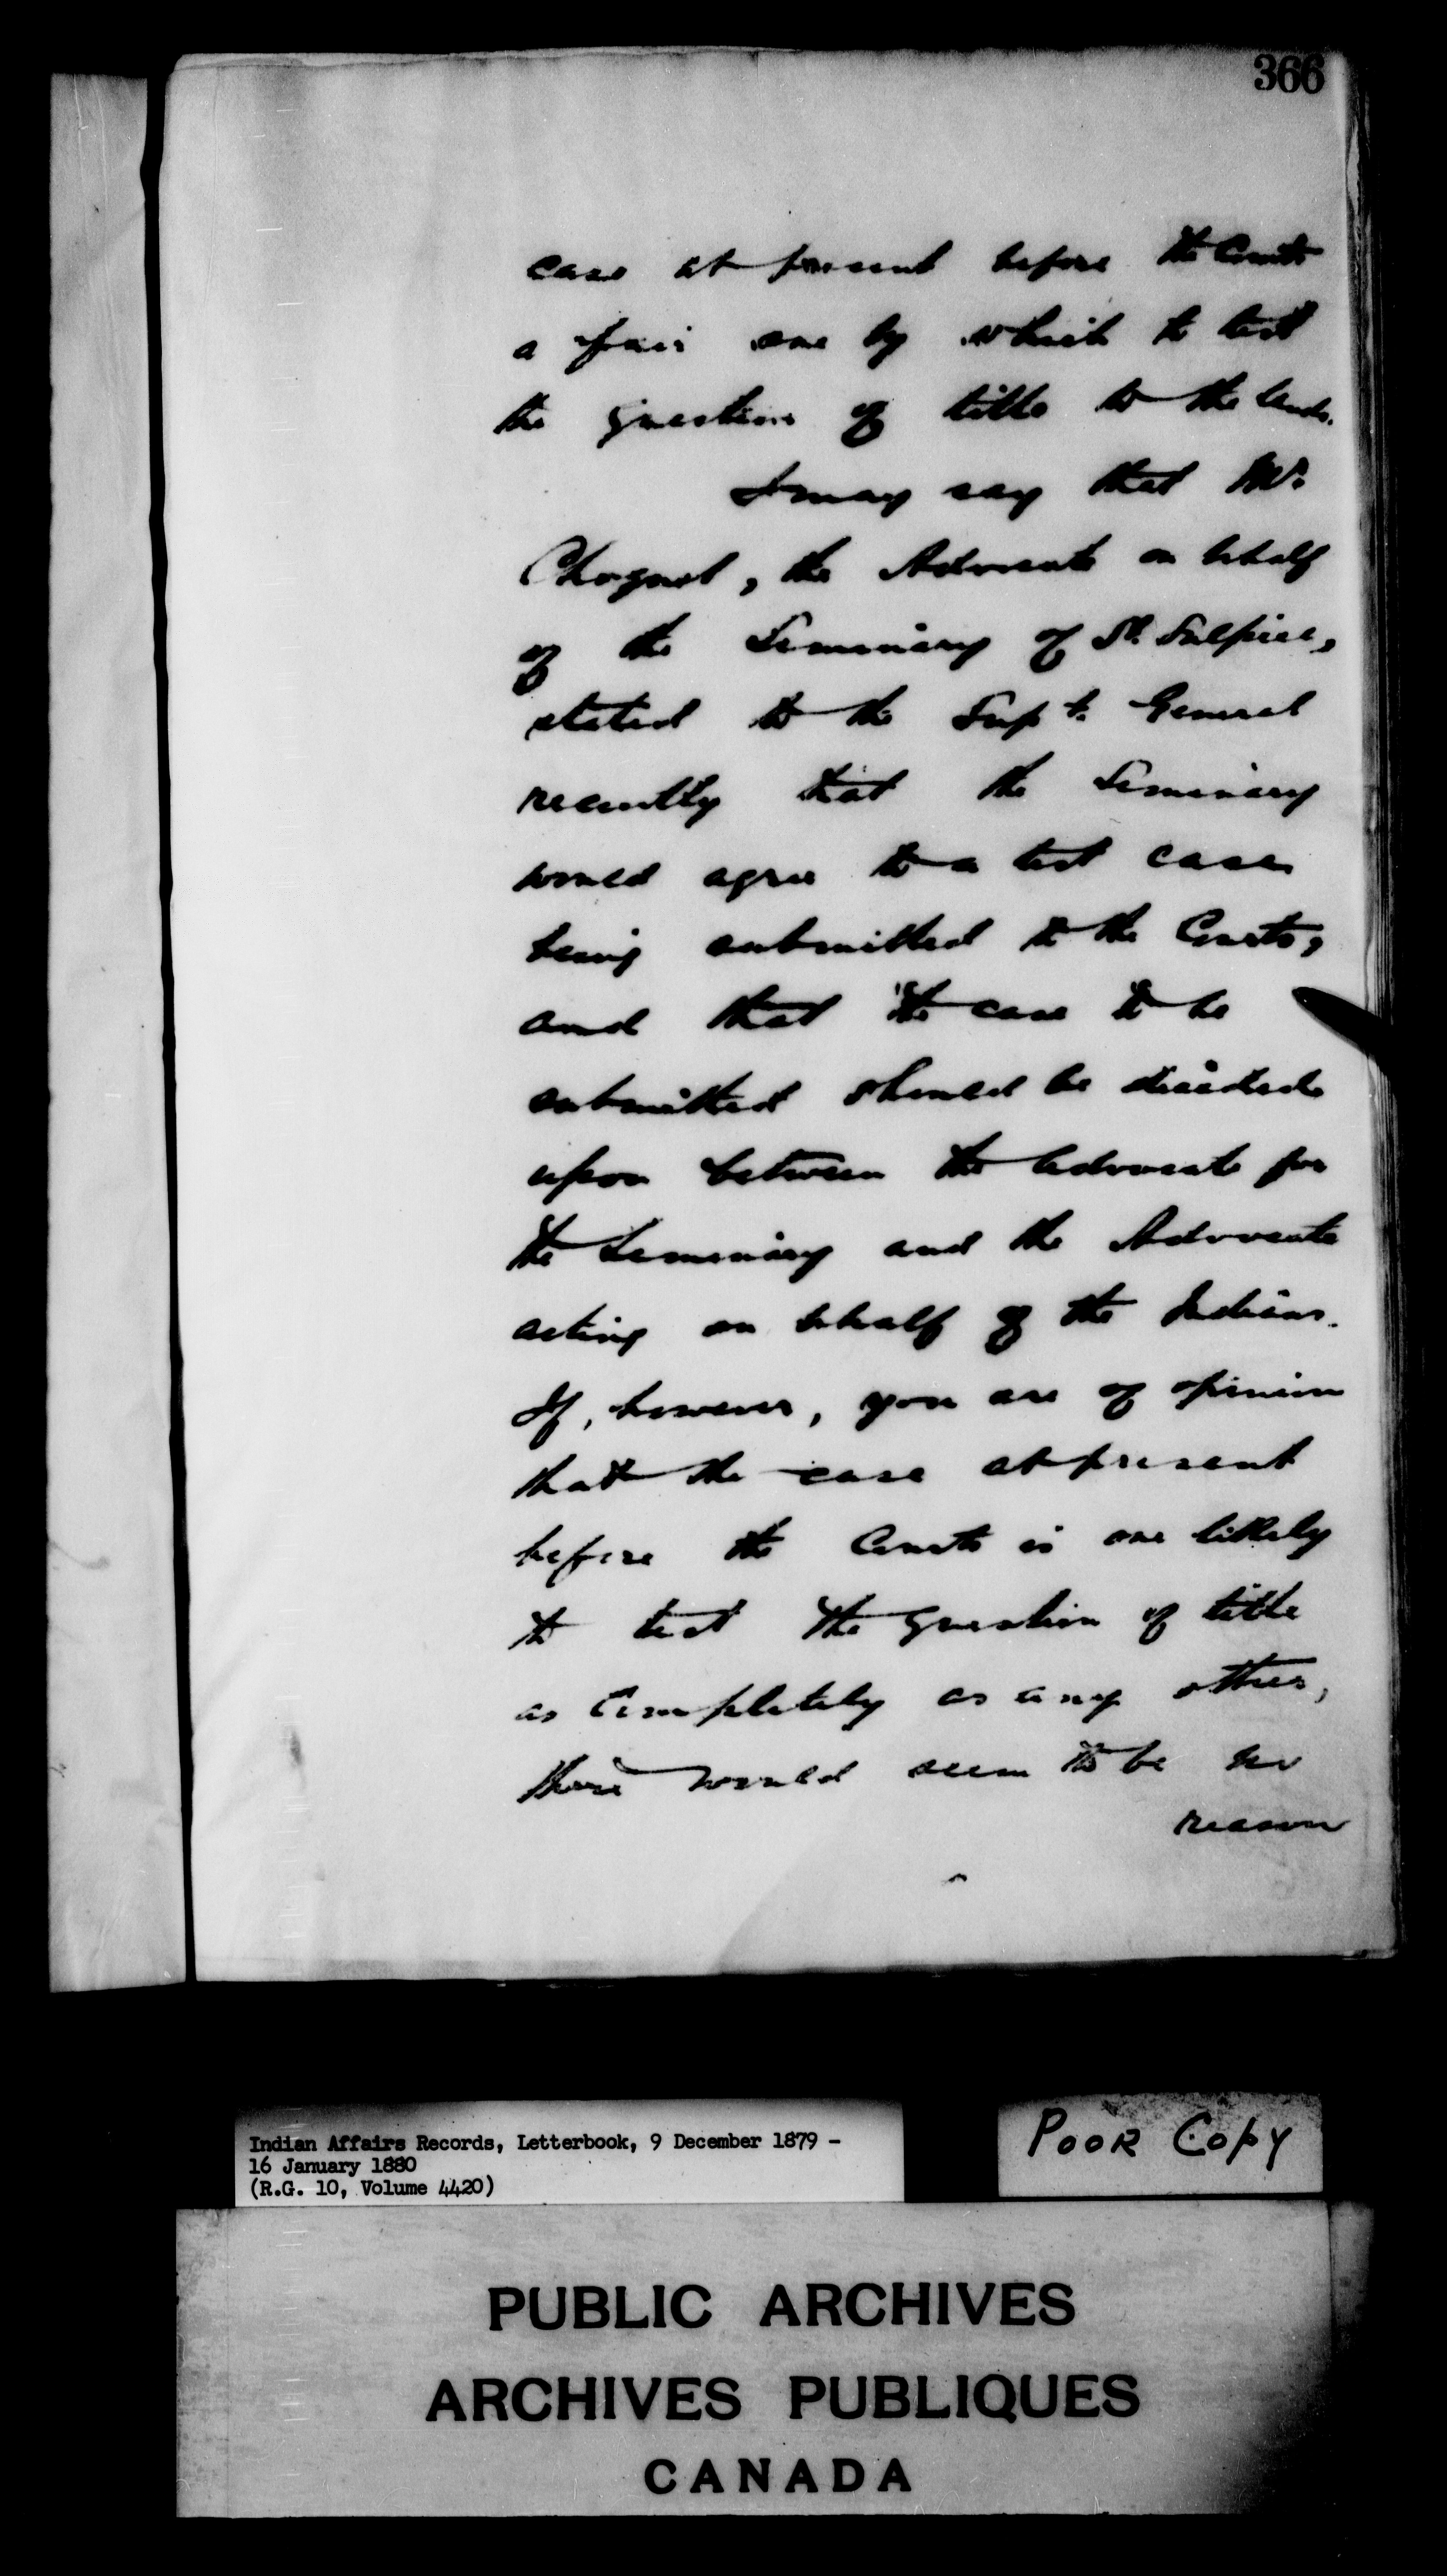 366
case at present before the Courts
a fair one by which to test
the question of title to the lands.
I may say that Mr.
Choquet, the Advocate on behalf
of the Seminary of St. Sulpice,
stated to the Supt. General
recently that the Seminary
would agree to a test case
being submitted to the Courts,
and that the case to be
submitted should be decided
upon between the Advocate for
the Seminary and the Advocate
acting on behalf of the Indians.
If, however, you are of opinion
that the case at present
before the Courts is one likely
to test the question of title
as completely as any other,
there would seem to be no
reason
Indian Affairs Records, Letterbook, 9 December 1879 -
16 January 1880
(R.G. 10, Volume 4420)
POOR COPY
PUBLIC ARCHIVES
ARCHIVES PUBLIQUES
CANADA